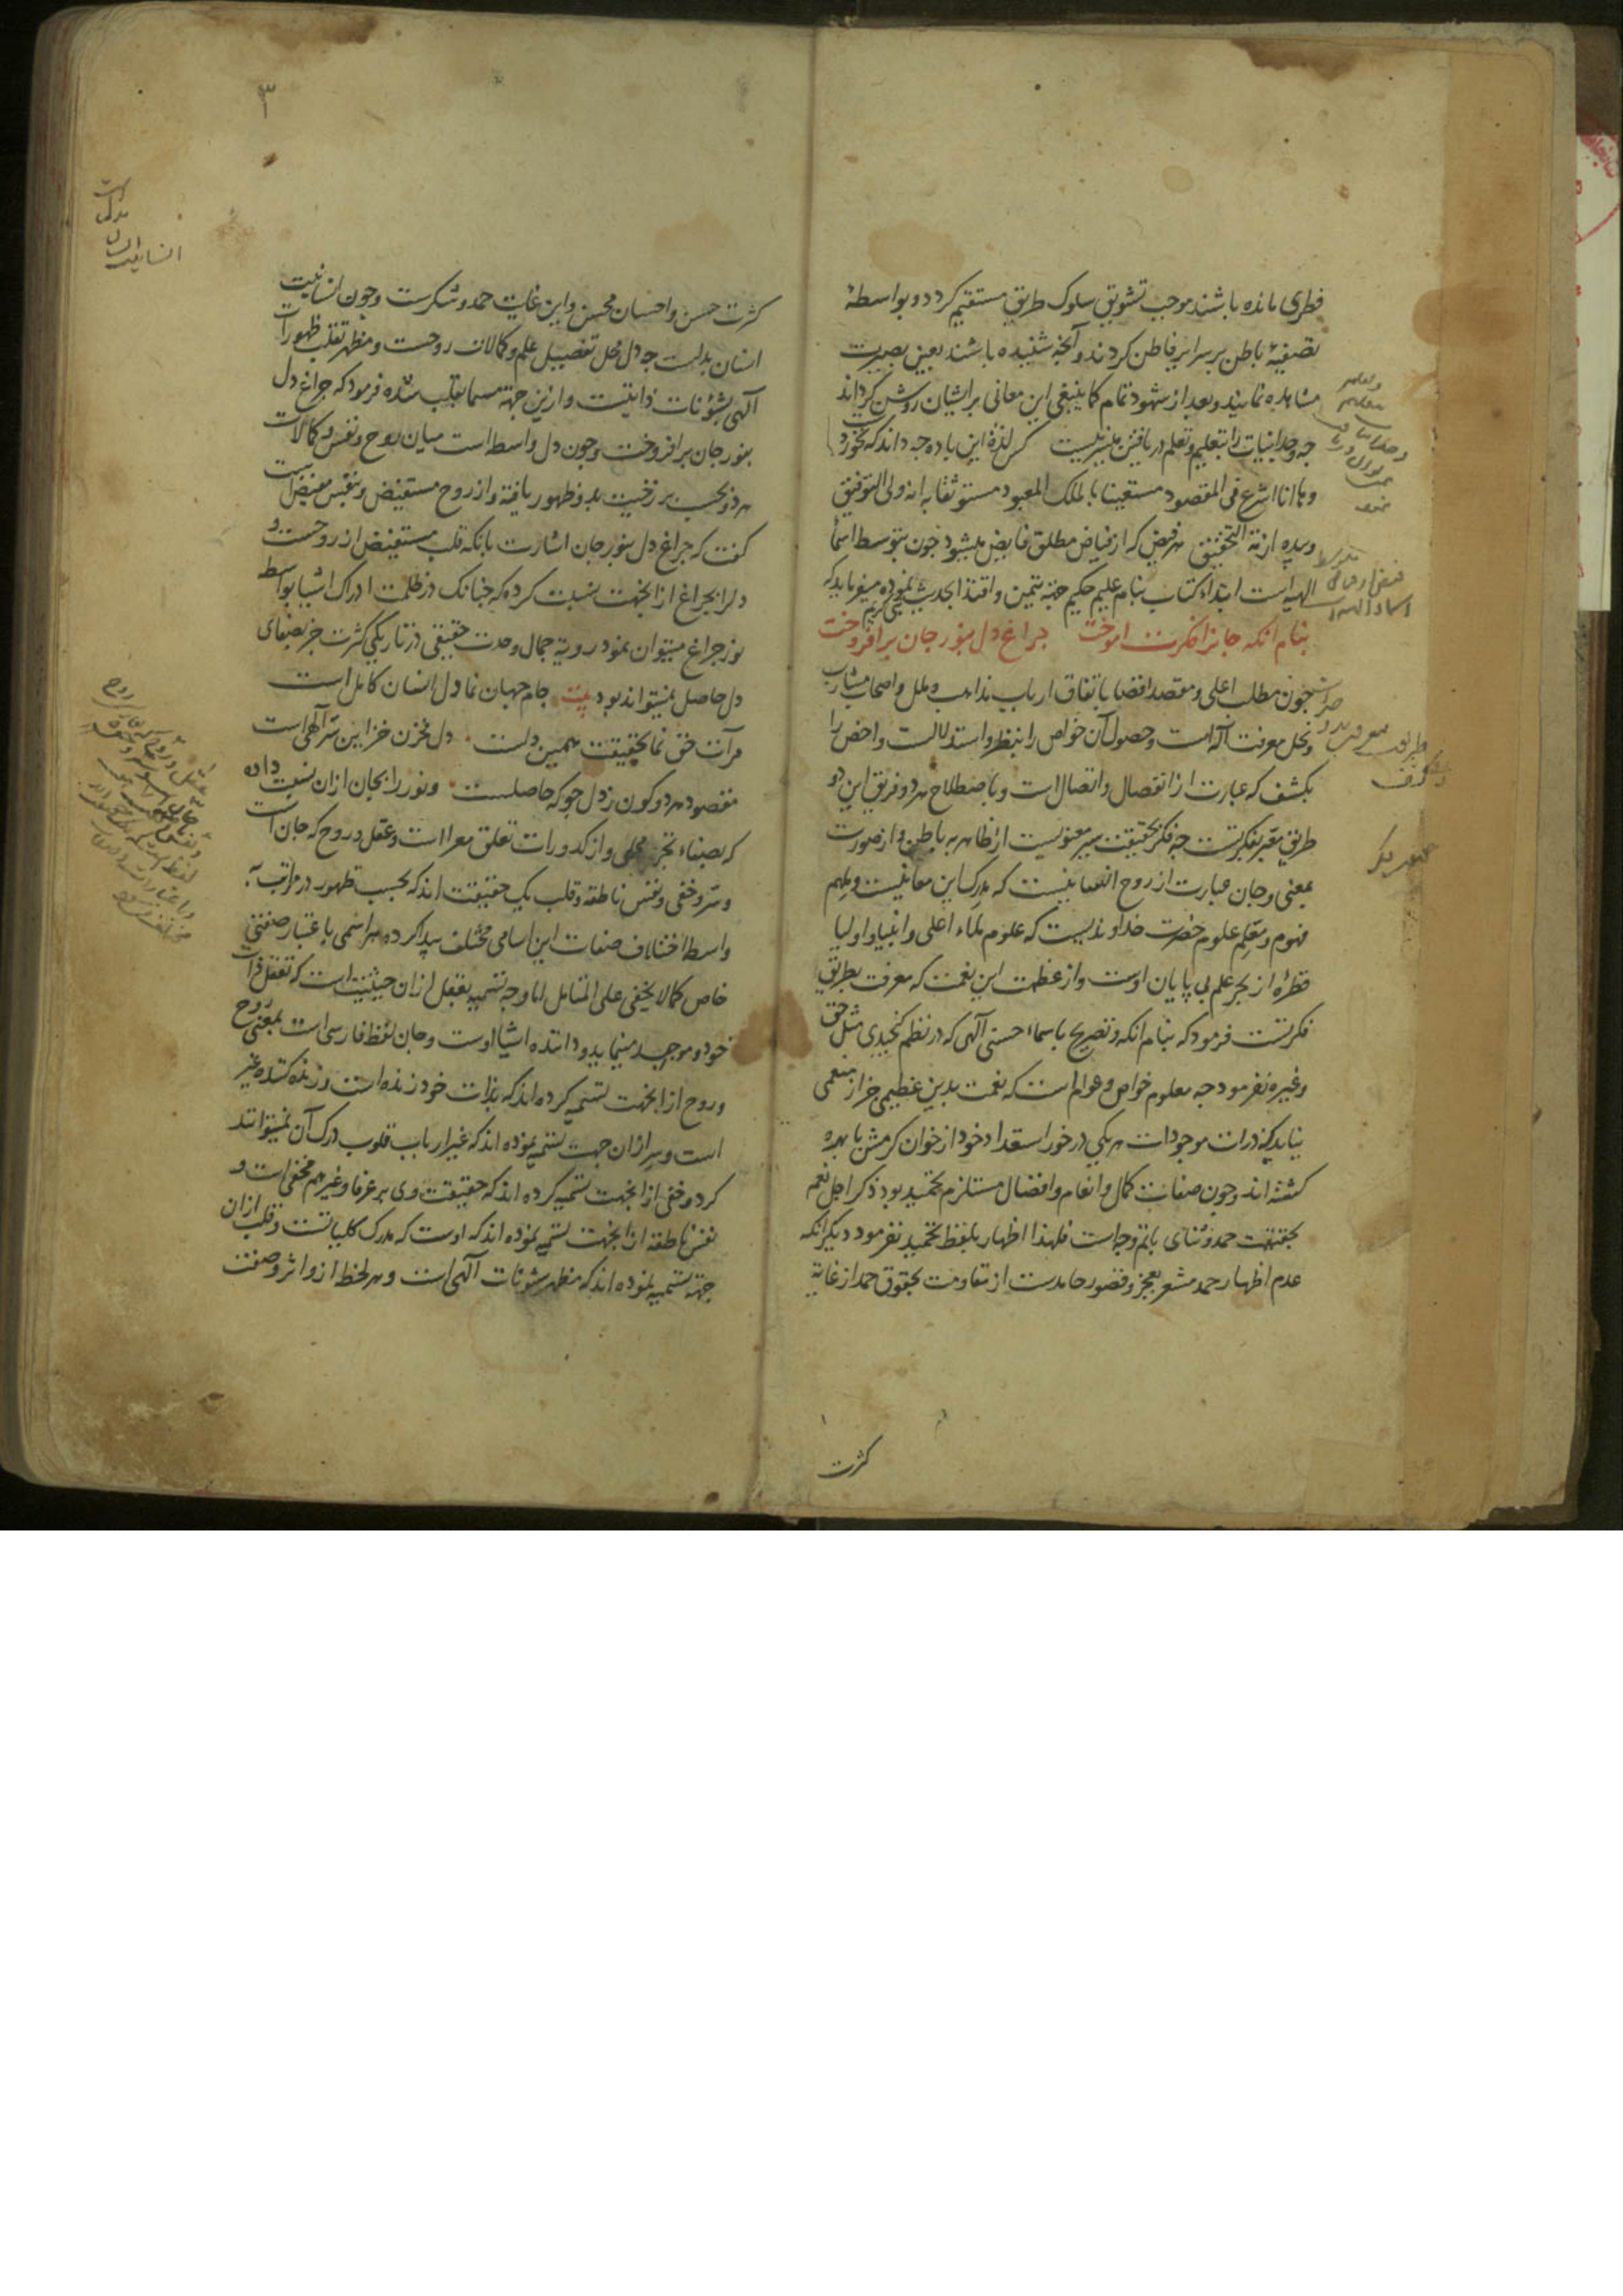 فطری مانده باشند موجب تشویق سلوک طریق مستقیم کردد و بواسطهٔ
تصفیهٔ باطن بر سرایر فاطن کردند و آنچه شنیده باشند بعین بصیرت
مشاهده نمایند و بعد از شهود تمام کما ینبغی این معانی بر ایشان روشن کرداند
چه وجدانیات را بتعلیم و تعلم دریافتن میسر نیست کس لذة این باده چه داند که نخورد
و ها انا اشرع فی المقصود مستعینا بالملک المعبود مستوثقا به انه ولی التوفیق
وبیده ازمة التحقیق هر فیض که از فیاض مطلق فایض میشود چون بتوسط اسما
الهیه است ابتداء کتاب بنام علیم حکیم جهة تیمن و اقتدا بحدیث نموده میفرماید که
بنام انکه جانرا فکرت اموخت چراغ دل بنور جان برافروخت
چون مطلب اعلی و مقصد اقصا باتفاق ارباب مذاهب و ملل و اصحاب مشارب
و نحل معرفت آله است و حصول آن خواص را بنظر و استدلالست و اخص را
بکشف که عبارت از انفصال و اتصال است و باصطلاح هر دو فریق این دو
طریق معبر بفکرتست چه فکر بحقیقت سیر معنویست از ظاهر به باطن و از صورت
بمعنی و جان عبارت از روح انسانیست که مدرک این معانیست و ملهم
فهوم و معلم علوم حضرت خداوندیست که علوم ملاء اعلی و انبیا و اولیا
قطرهٔ از بحر علم بی پایان اوست و از عظمت این نعمت که معرفت بطریق
فکرتست فرمود که بنام انکه و تصریح باسماء حسنی آلهی که در نظم کنجیدی مثل حق
و غیره نفرمود چه معلوم خواص و عوام است که نعمت بدین عظیمی جز از منعمی
نیاید که ذرات موجودات هر یکی در خور استعداد خود از خوان کرمش با بهره
کشته اند و چون صفات کمال و انعام و افضال مستلزم تحمید بود ذکر اجل نعم
بحقیقت حمد و ثنای باتم وجه است فلهذا اظهار بلفظ تحمید نفرمود دیکر انکه
عدم اظهار حمد مشعر بعجز و قصور حامدست از مقاومت بحقوق حمد از غایة
کثرت
۳
کثرت حسن و احسان محسن و این غایت حمد و شکرست و چون انسانیت
انسان بدلست چه دل محل تفصیل علم و کمالات روحست و مظهر تقلب ظهورات
آلهی بشؤنات ذاتیست و ازین جهة مسما بقلب شده فرمود که چراغ دل
بنور جان برافروخت و چون دل واسط است میان روح و نفس و کمالات
هر دو بحسب برزخیت بدو ظهور یافته و از روح مستفیض و بنفس مفیض است
کفت که چراغ دل بنور جان اشارت بانکه قلب مستفیض از روحست و
دلرا بچراغ از انجهت نسبت کرده که چنانک در ظلمت ادراک اشیا بواسط
نور چراغ میتوان نمود رویة جمال وحدت حقیقی در تاریکی کثرت جز بصفای
دل حاصل نمیتواند بود بیت جام جهان نما دل انسان کامل است
مرآت حق نما بحقیقت همین دلست دل مخزن خزاین سر آلهی است
مقصود هر دو کون ز دل جو که حاصلست و نور را بجان ازان نسبت داده
که بصفاء تجرد محلی و از کدورات تعلق معرا است و عقل و روح که جان است
و سر و خفی و نفس ناطقه و قلب یک حقیقت اند که بحسب ظهور در مراتب به
واسط اختلاف صفات این اسامی مختلف پیدا کرده هر اسمی باعتبار صفتی
خاص کما لا یخفی علی المتامل اما وجه تسمیه بعقل ازان حیثیت است که تعقل ذات
خود و موجد مینماید و داننده اشیا اوست و جان لفظ فارسی است بمعنی روح
و روح از انجهت تسمیه کرده اند که بذات خود زنده است و زنده کننده غیر
است و سر ازان جهت تسمیه نموده اند که غیر ارباب قلوب درک آن نمیتوانند
کرد و خفی از انجهت تسمیه کرده اند که حقیقت وی بر عرفا و غیرهم مخفی است و
نفس ناطقه از انجهت تسمیه نموده اند که اوست که مدرک کلیاتست و قلب ازان
جهة تسمیه نموده اند که مظهر شونات آلهی است و هر لحظ ازو اثر و صفت